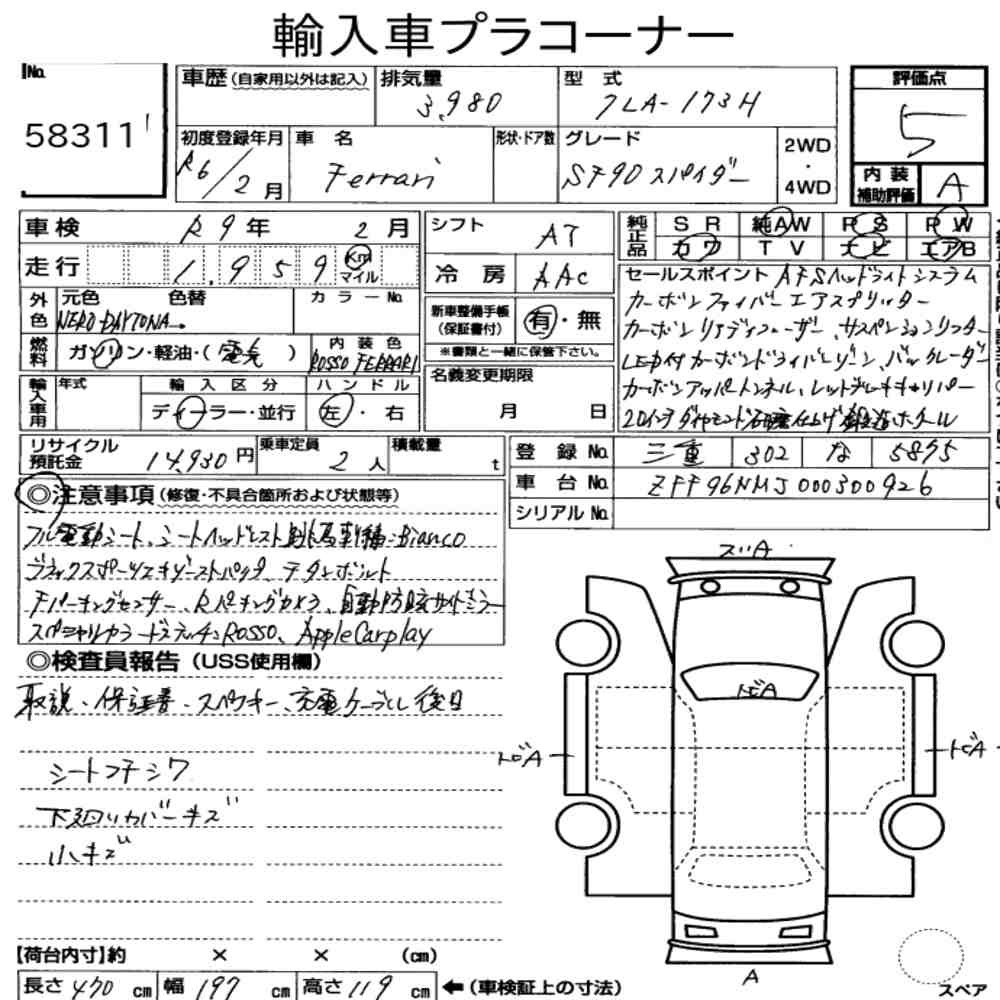 輸入車プラコーナー
No. 58311
車歴(自家用以外は記入) 排気量 3,980 型式 7LA-173H
評価点 5
初度登録年月 R6/2月 車名 Ferrari 形状・ドア数 グレード SF90 スパイダー 2WD・4WD
内装補助評価 A
車検 R9年 2月 シフト AT 純正品 SR 純AW PS PW
走行 1,959 Km マイル 冷房 AAC カワ TV ナビ エアB
外色 元色 色替 NERO DAYTONA カラーNo.
新車整備手帳(保証書付) 有・無
※書類と一緒に保管下さい。
燃料 ガソリン・軽油・(電気) 内装色 ROSSO FERRARI
輸入車用 年式 輸入区分 ディーラー・並行 ハンドル 左・右
名義変更期限 月 日
セールスポイント AFSヘッドライトシステム
カーボンファイバーエアスプリッター
カーボンリアディフューザー、サスペンションリフター
LED付カーボンドライバーゾーン、バックレーダー
カーボンアッパートンネル、レッドブレーキキャリパー
20インチダイヤモンド研磨仕上げ鍛造ホイール
リサイクル預託金 14,930円 乗車定員 2人 積載量 t
登録No. 三重 302 な 5895
車台No. ZFF96NMJ000300926
シリアルNo.
◎注意事項(修復・不具合箇所および状態等)
フル電動シート、シートヘッドレスト跳馬刺繍:Bianco
ブラックスポーツエキゾーストパイプ、チタンボルト
Fパーキングセンサー、Rパーキングカメラ、自動防眩サイドミラー
スペシャルカラードステッチ:ROSSO、AppleCarplay
◎検査員報告(USS使用欄)
取説、保証書、スペアキー、充電ケーブル後日
シートフチシワ
下廻りカバーキズ
小キズ
ズハA
トビA
トビA
トビA
A
スペア
【荷台内寸】約 × × (cm)
長さ 470 cm 幅 197 cm 高さ 119 cm ←(車検証上の寸法)